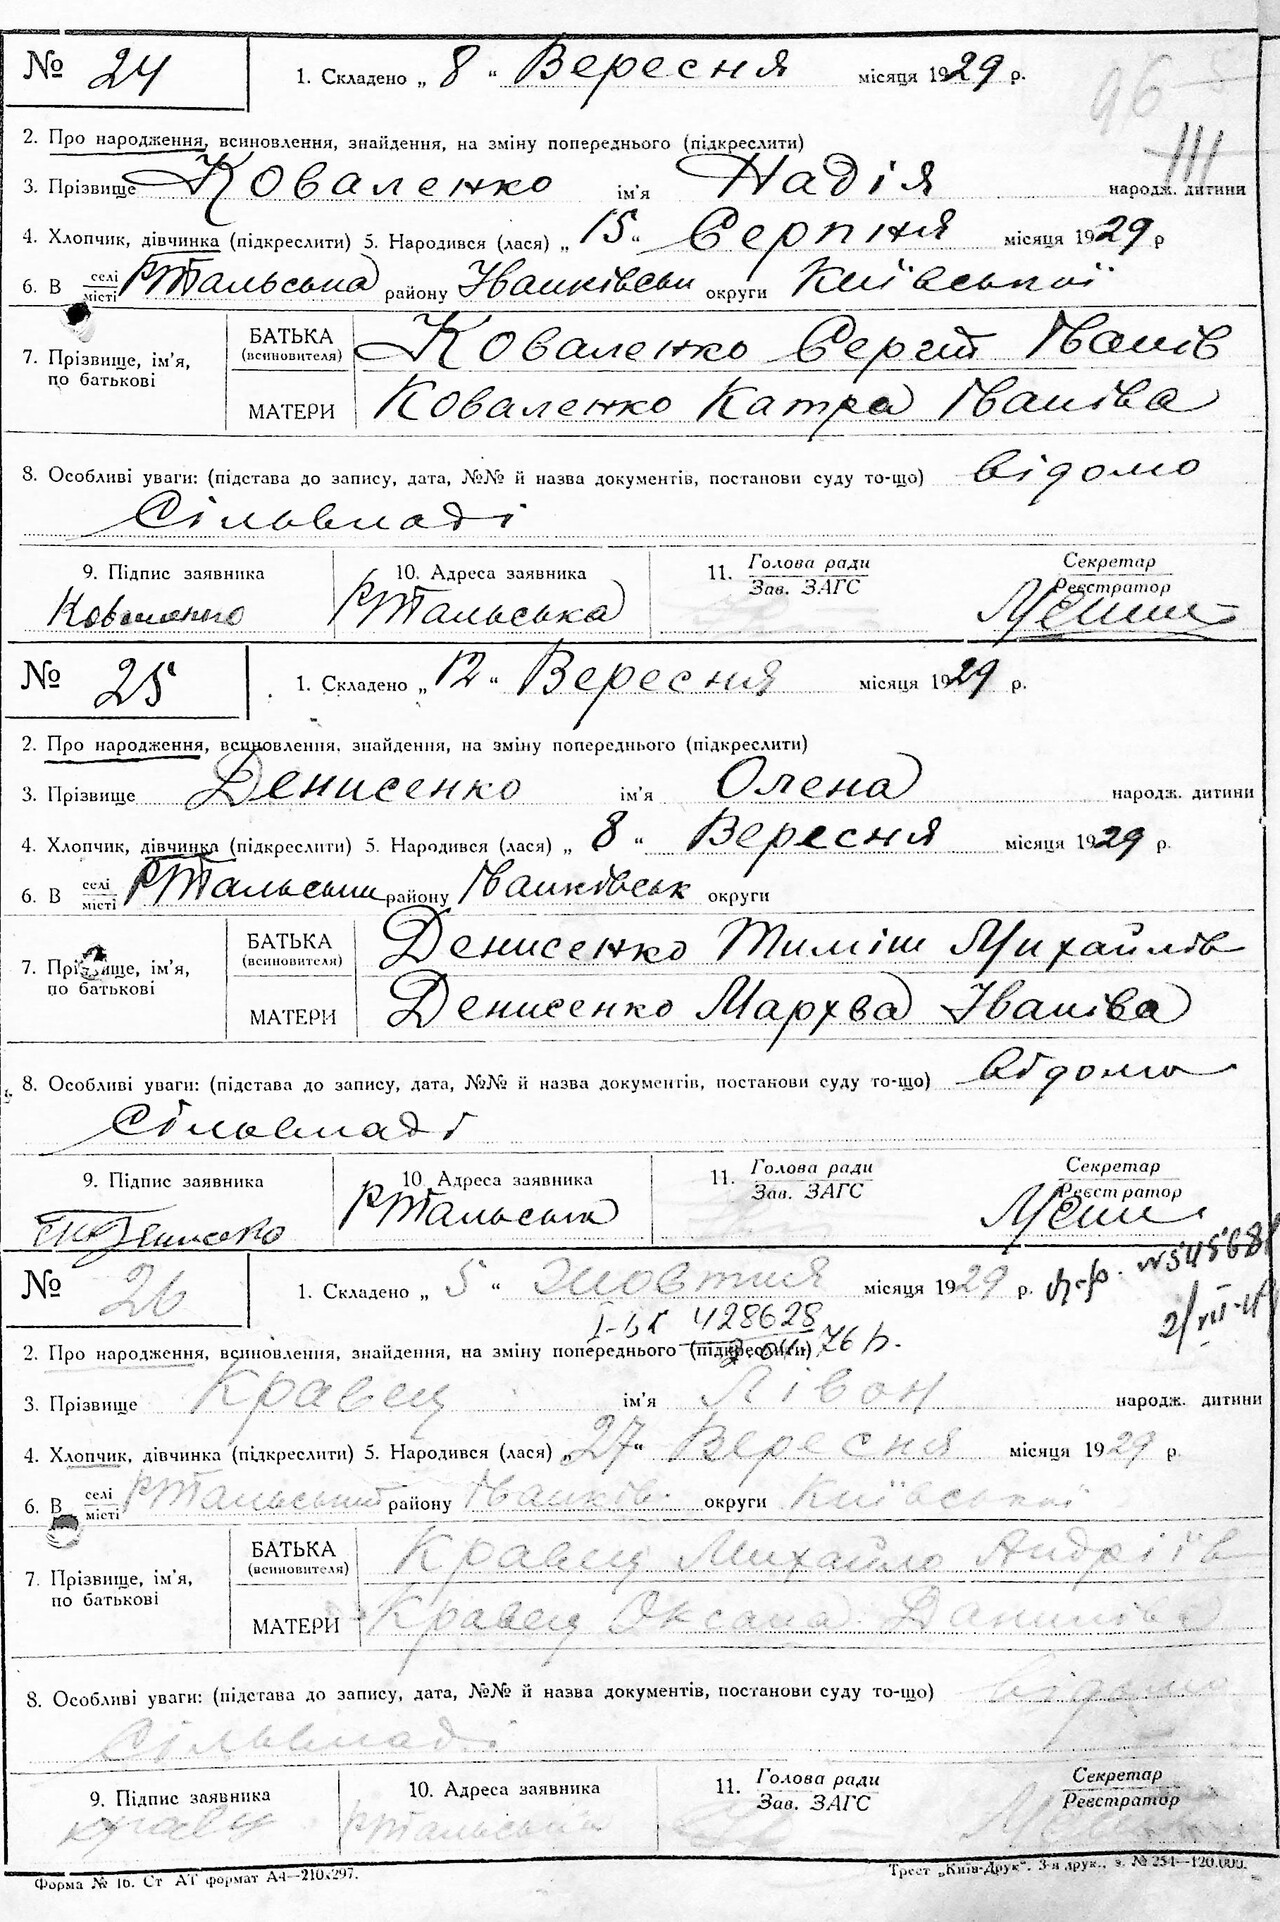 № 24 1. Складено „ 8 “ Вересня місяця 1929 р.
96
III
2. Про народження, всиновлення, знайдення, на зміну попереднього (підкреслити)
3. Прізвище Коваленко ім'я Надія народж. дитини
4. Хлопчик, дівчинка (підкреслити) 5. Народився (лася) „ 15 “ Серпня місяця 1929 р
6. В селі місті РТальська району Іванківськ округи Київської
7. Прізвище, ім'я, по батькові БАТЬКА (всиновителя) Коваленко Сергій Іванів
МАТЕРИ Коваленко Катра Іванівa
8. Особливі уваги: (підстава до запису, дата, №№ й назва документів, постанови суду то-що) Відомо
Сільвладі
9. Підпис заявника 10. Адреса заявника 11. Голова ради Зав. ЗАГС Секретар Реєстратор
Коваленко РТальська
№ 25 1. Складено „ 12 “ Вересня місяця 1929 р.
2. Про народження, всиновлення, знайдення, на зміну попереднього (підкреслити)
3. Прізвище Денисенко ім'я Олена народж. дитини
4. Хлопчик, дівчинка (підкреслити) 5. Народився (лася) „ 8 “ Вересня місяця 1929 р.
6. В селі місті РТальська району Іванківськ округи
7. Прізвище, ім'я, по батькові БАТЬКА (всиновителя) Денисенко Тиміш Михайлів
МАТЕРИ Денисенко Мархва Іванівa
8. Особливі уваги: (підстава до запису, дата, №№ й назва документів, постанови суду то-що) Відомо
Сільвладі
9. Підпис заявника 10 Адреса заявника 11. Голова ради Зав. ЗАГС Секретар Реєстратор
РТальська
№ 26 1. Складено „ 5 “ Жовтня місяця 1929 р.
428628
76 р.
2. Про народження, всиновлення, знайдення, на зміну попереднього (підкреслити)
3. Прізвище Кравец ім'я Лівон народж. дитини
4. Хлопчик, дівчинка (підкреслити) 5. Народився (лася) „ 27 “ Вересня місяця 1929 р.
6. В селі місті РТальський району Іванків. округи Київської
7. Прізвище, ім'я, по батькові БАТЬКА (всиновителя) Кравец Михайло Андріїв
МАТЕРИ Кравец Оксана Данилівa
8. Особливі уваги: (підстава до запису, дата, №№ й назва документів, постанови суду то-що) Відомо
Сільвладі
9. Підпис заявника 10. Адреса заявника 11. Голова ради Зав. ЗАГС Секретар Реєстратор
Кравец РТальська
Форма № 16. Ст АТ формат А4—210х297. Трест „Київ-Друк“. 3-я друк., з. № 254—120.000.